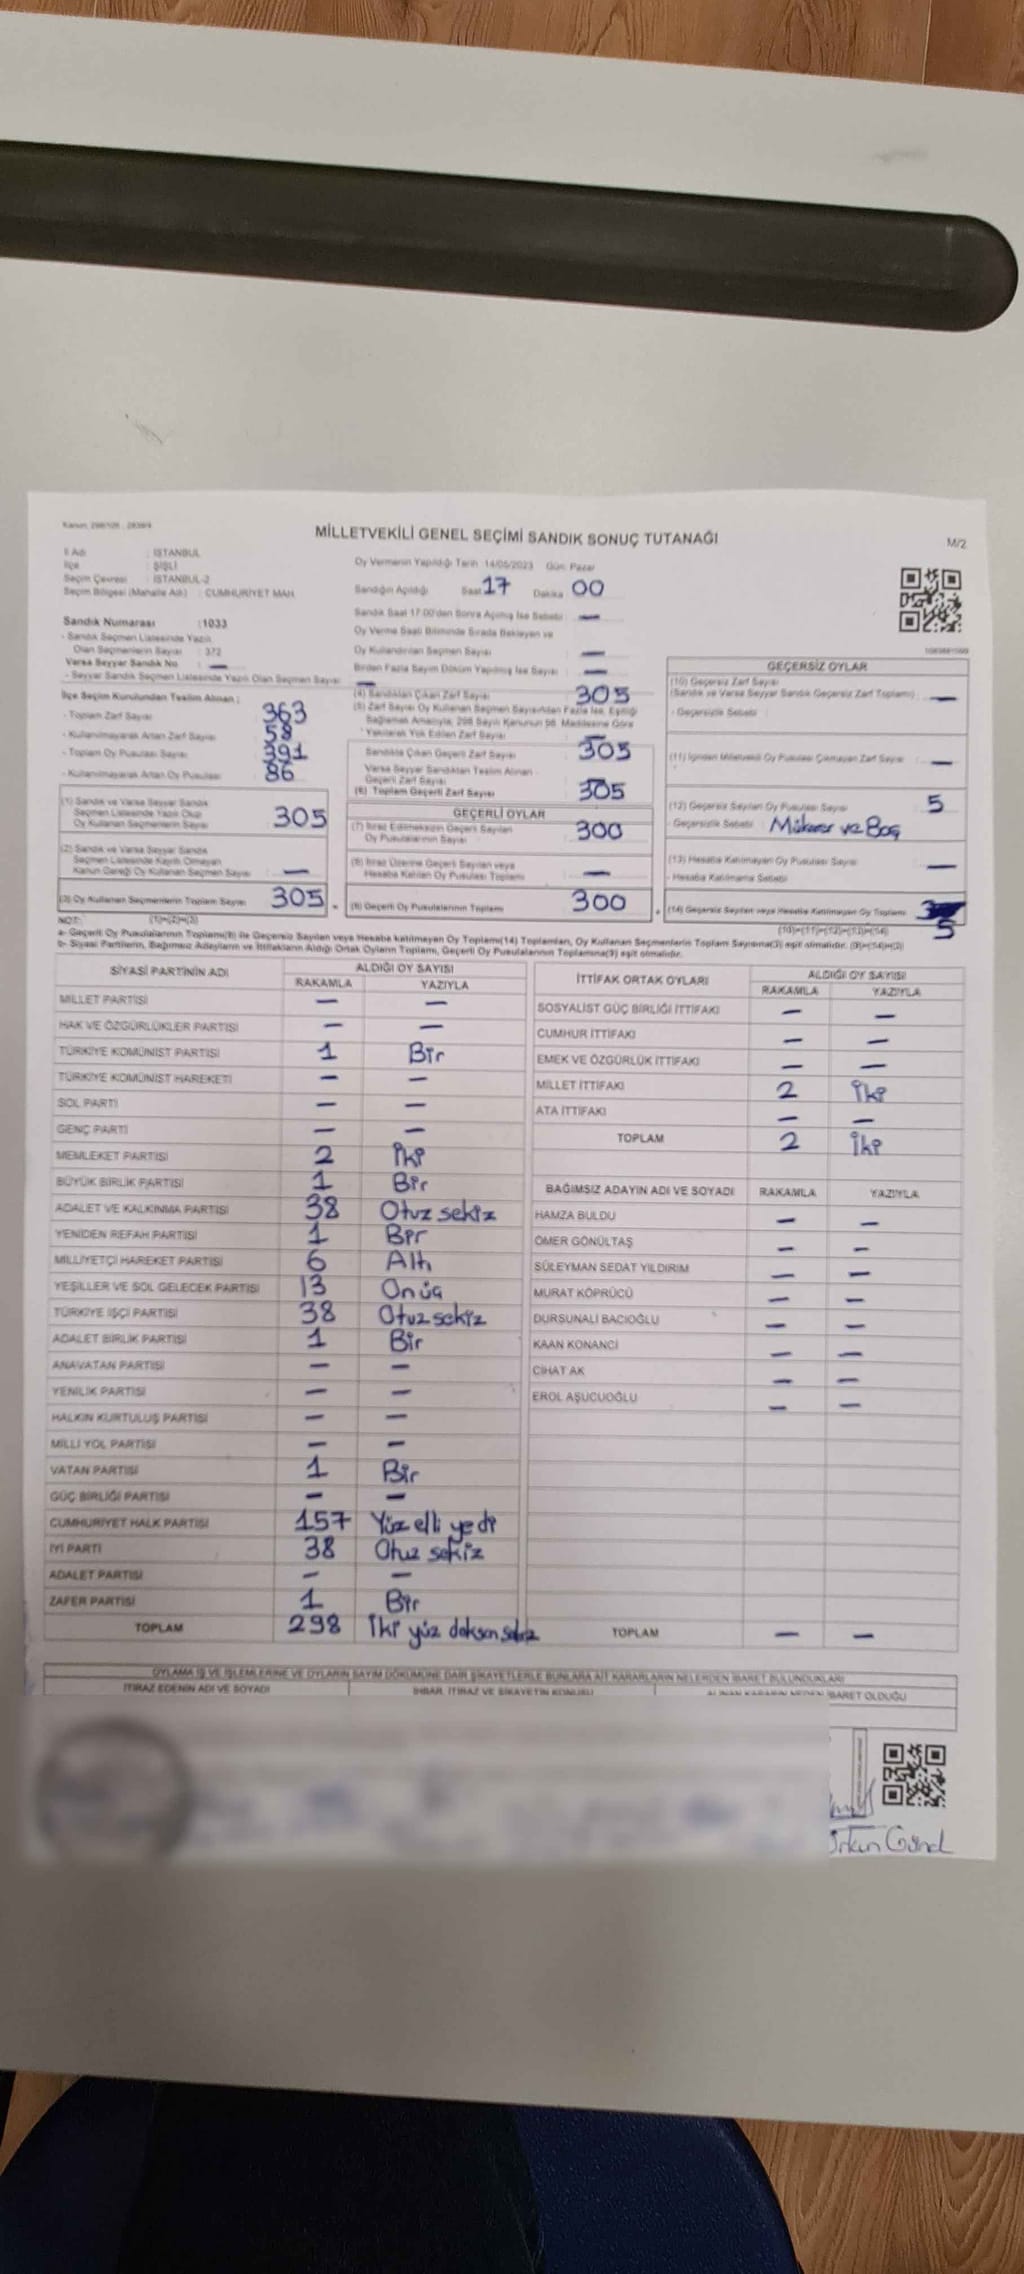 Kanun: 298/105 , 2839/4
MİLLETVEKİLİ GENEL SEÇİMİ SANDIK SONUÇ TUTANAĞI
M/2
İl Adı : İSTANBUL
İlçe : ŞİŞLİ
Seçim Çevresi : İSTANBUL-2
Seçim Bölgesi (Mahalle Adı) : CUMHURİYET MAH.
Oy Vermenin Yapıldığı Tarih 14/05/2023 Gün: Pazar
Sandığın Açıldığı Saat 17 Dakika 00
Sandık Saat 17.00'den Sonra Açılmış İse Sebebi : —
Oy Verme Saati Bitiminde Sırada Bekleyen ve
Oy Kullandırılan Seçmen Sayısı —
Birden Fazla Sayım Döküm Yapılmış İse Sayısı : —
Sandık Numarası :1033
- Sandık Seçmen Listesinde Yazılı
Olan Seçmenlerin Sayısı : 372
Varsa Seyyar Sandık No : —
- Seyyar Sandık Seçmen Listesinde Yazılı Olan Seçmen Sayısı: —
İlçe Seçim Kurulundan Teslim Alınan :
- Toplam Zarf Sayısı 363
- Kullanılmayarak Artan Zarf Sayısı 58
- Toplam Oy Pusulası Sayısı 391
- Kullanılmayarak Artan Oy Pusulası 86
(1) Sandık ve Varsa Seyyar Sandık
Seçmen Listesinde Yazılı Olup
Oy Kullanan Seçmenlerin Sayısı 305
(2) Sandık ve Varsa Seyyar Sandık
Seçmen Listesinde Kayıtlı Olmayan
Kanun Gereği Oy Kullanan Seçmen Sayısı : —
(3) Oy Kullanan Seçmenlerin Toplam Sayısı 305
(4) Sandıktan Çıkan Zarf Sayısı 305
(5) Zarf Sayısı Oy Kullanan Seçmen Sayısından Fazla İse, Eşitliği
Sağlamak Amacıyla, 298 Sayılı Kanunun 98. Maddesine Göre
Yakılarak Yok Edilen Zarf Sayısı —
Sandıkta Çıkan Geçerli Zarf Sayısı 305
Varsa Seyyar Sandıktan Teslim Alınan
Geçerli Zarf Sayısı —
(6) Toplam Geçerli Zarf Sayısı 305
GEÇERLİ OYLAR
(7) İtiraz Edilmeksizin Geçerli Sayılan
Oy Pusulalarının Sayısı 300
(8) İtiraz Üzerine Geçerli Sayılan veya
Hesaba Katılan Oy Pusulası Toplamı —
(9) Geçerli Oy Pusulalarının Toplamı 300
GEÇERSİZ OYLAR
(10) Geçersiz Zarf Sayısı
(Sandık ve Varsa Seyyar Sandık Geçersiz Zarf Toplamı) : —
- Geçersizlik Sebebi :
(11) İçinden Milletvekili Oy Pusulası Çıkmayan Zarf Sayısı —
(12) Geçersiz Sayılan Oy Pusulası Sayısı 5
- Geçersizlik Sebebi : Mükerrer ve Boş
(13) Hesaba Katılmayan Oy Pusulası Sayısı —
- Hesaba Katılmama Sebebi
(14) Geçersiz Sayılan veya Hesaba Katılmayan Oy Toplamı 5
NOT: (1)+(2)=(3)
(10)+(11)+(12)+(13)=(14)
a- Geçerli Oy Pusulalarının Toplamı(9) ile Geçersiz Sayılan veya Hesaba katılmayan Oy Toplamı(14) Toplamları, Oy Kullanan Seçmenlerin Toplam Sayısına(3) eşit olmalıdır. (9)+(14)=(3)
b- Siyasi Partilerin, Bağımsız Adayların ve İttifakların Aldığı Ortak Oyların Toplamı, Geçerli Oy Pusulalarının Toplamına(9) eşit olmalıdır.
SİYASİ PARTİNİN ADI ALDIĞI OY SAYISI
RAKAMLA YAZIYLA
MİLLET PARTİSİ — —
HAK VE ÖZGÜRLÜKLER PARTİSİ — —
TÜRKİYE KOMÜNİST PARTİSİ 1 Bir
TÜRKİYE KOMÜNİST HAREKETİ — —
SOL PARTİ — —
GENÇ PARTİ — —
MEMLEKET PARTİSİ 2 İki
BÜYÜK BİRLİK PARTİSİ 1 Bir
ADALET VE KALKINMA PARTİSİ 38 Otuz sekiz
YENİDEN REFAH PARTİSİ 1 Bir
MİLLİYETÇİ HAREKET PARTİSİ 6 Altı
YEŞİLLER VE SOL GELECEK PARTİSİ 13 Onüç
TÜRKİYE İŞÇİ PARTİSİ 38 Otuz sekiz
ADALET BİRLİK PARTİSİ 1 Bir
ANAVATAN PARTİSİ — —
YENİLİK PARTİSİ — —
HALKIN KURTULUŞ PARTİSİ — —
MİLLİ YOL PARTİSİ — —
VATAN PARTİSİ 1 Bir
GÜÇ BİRLİĞİ PARTİSİ — —
CUMHURİYET HALK PARTİSİ 157 Yüz elli yedi
İYİ PARTİ 38 Otuz sekiz
ADALET PARTİSİ — —
ZAFER PARTİSİ 1 Bir
TOPLAM 298 İki yüz doksan sekiz
İTTİFAK ORTAK OYLARI ALDIĞI OY SAYISI
RAKAMLA YAZIYLA
SOSYALİST GÜÇ BİRLİĞİ İTTİFAKI — —
CUMHUR İTTİFAKI — —
EMEK VE ÖZGÜRLÜK İTTİFAKI — —
MİLLET İTTİFAKI 2 İki
ATA İTTİFAKI — —
TOPLAM 2 İki
BAĞIMSIZ ADAYIN ADI VE SOYADI RAKAMLA YAZIYLA
HAMZA BULDU — —
ÖMER GÖNÜLTAŞ — —
SÜLEYMAN SEDAT YILDIRIM — —
MURAT KÖPRÜCÜ — —
DURSUNALİ BACIOĞLU — —
KAAN KONANCİ — —
CİHAT AK — —
EROL AŞUCUOĞLU — —
TOPLAM — —
OYLAMA İŞ VE İŞLEMLERİNE VE OYLARIN SAYIM DÖKÜMÜNE DAİR ŞİKAYETLERLE BUNLARA AİT KARARLARIN NELERDEN İBARET BULUNDUKLARI
İTİRAZ EDENİN ADI VE SOYADI İHBAR, İTİRAZ VE ŞİKAYETİN KONUSU ALINAN KARARIN NEDEN İBARET OLDUĞU